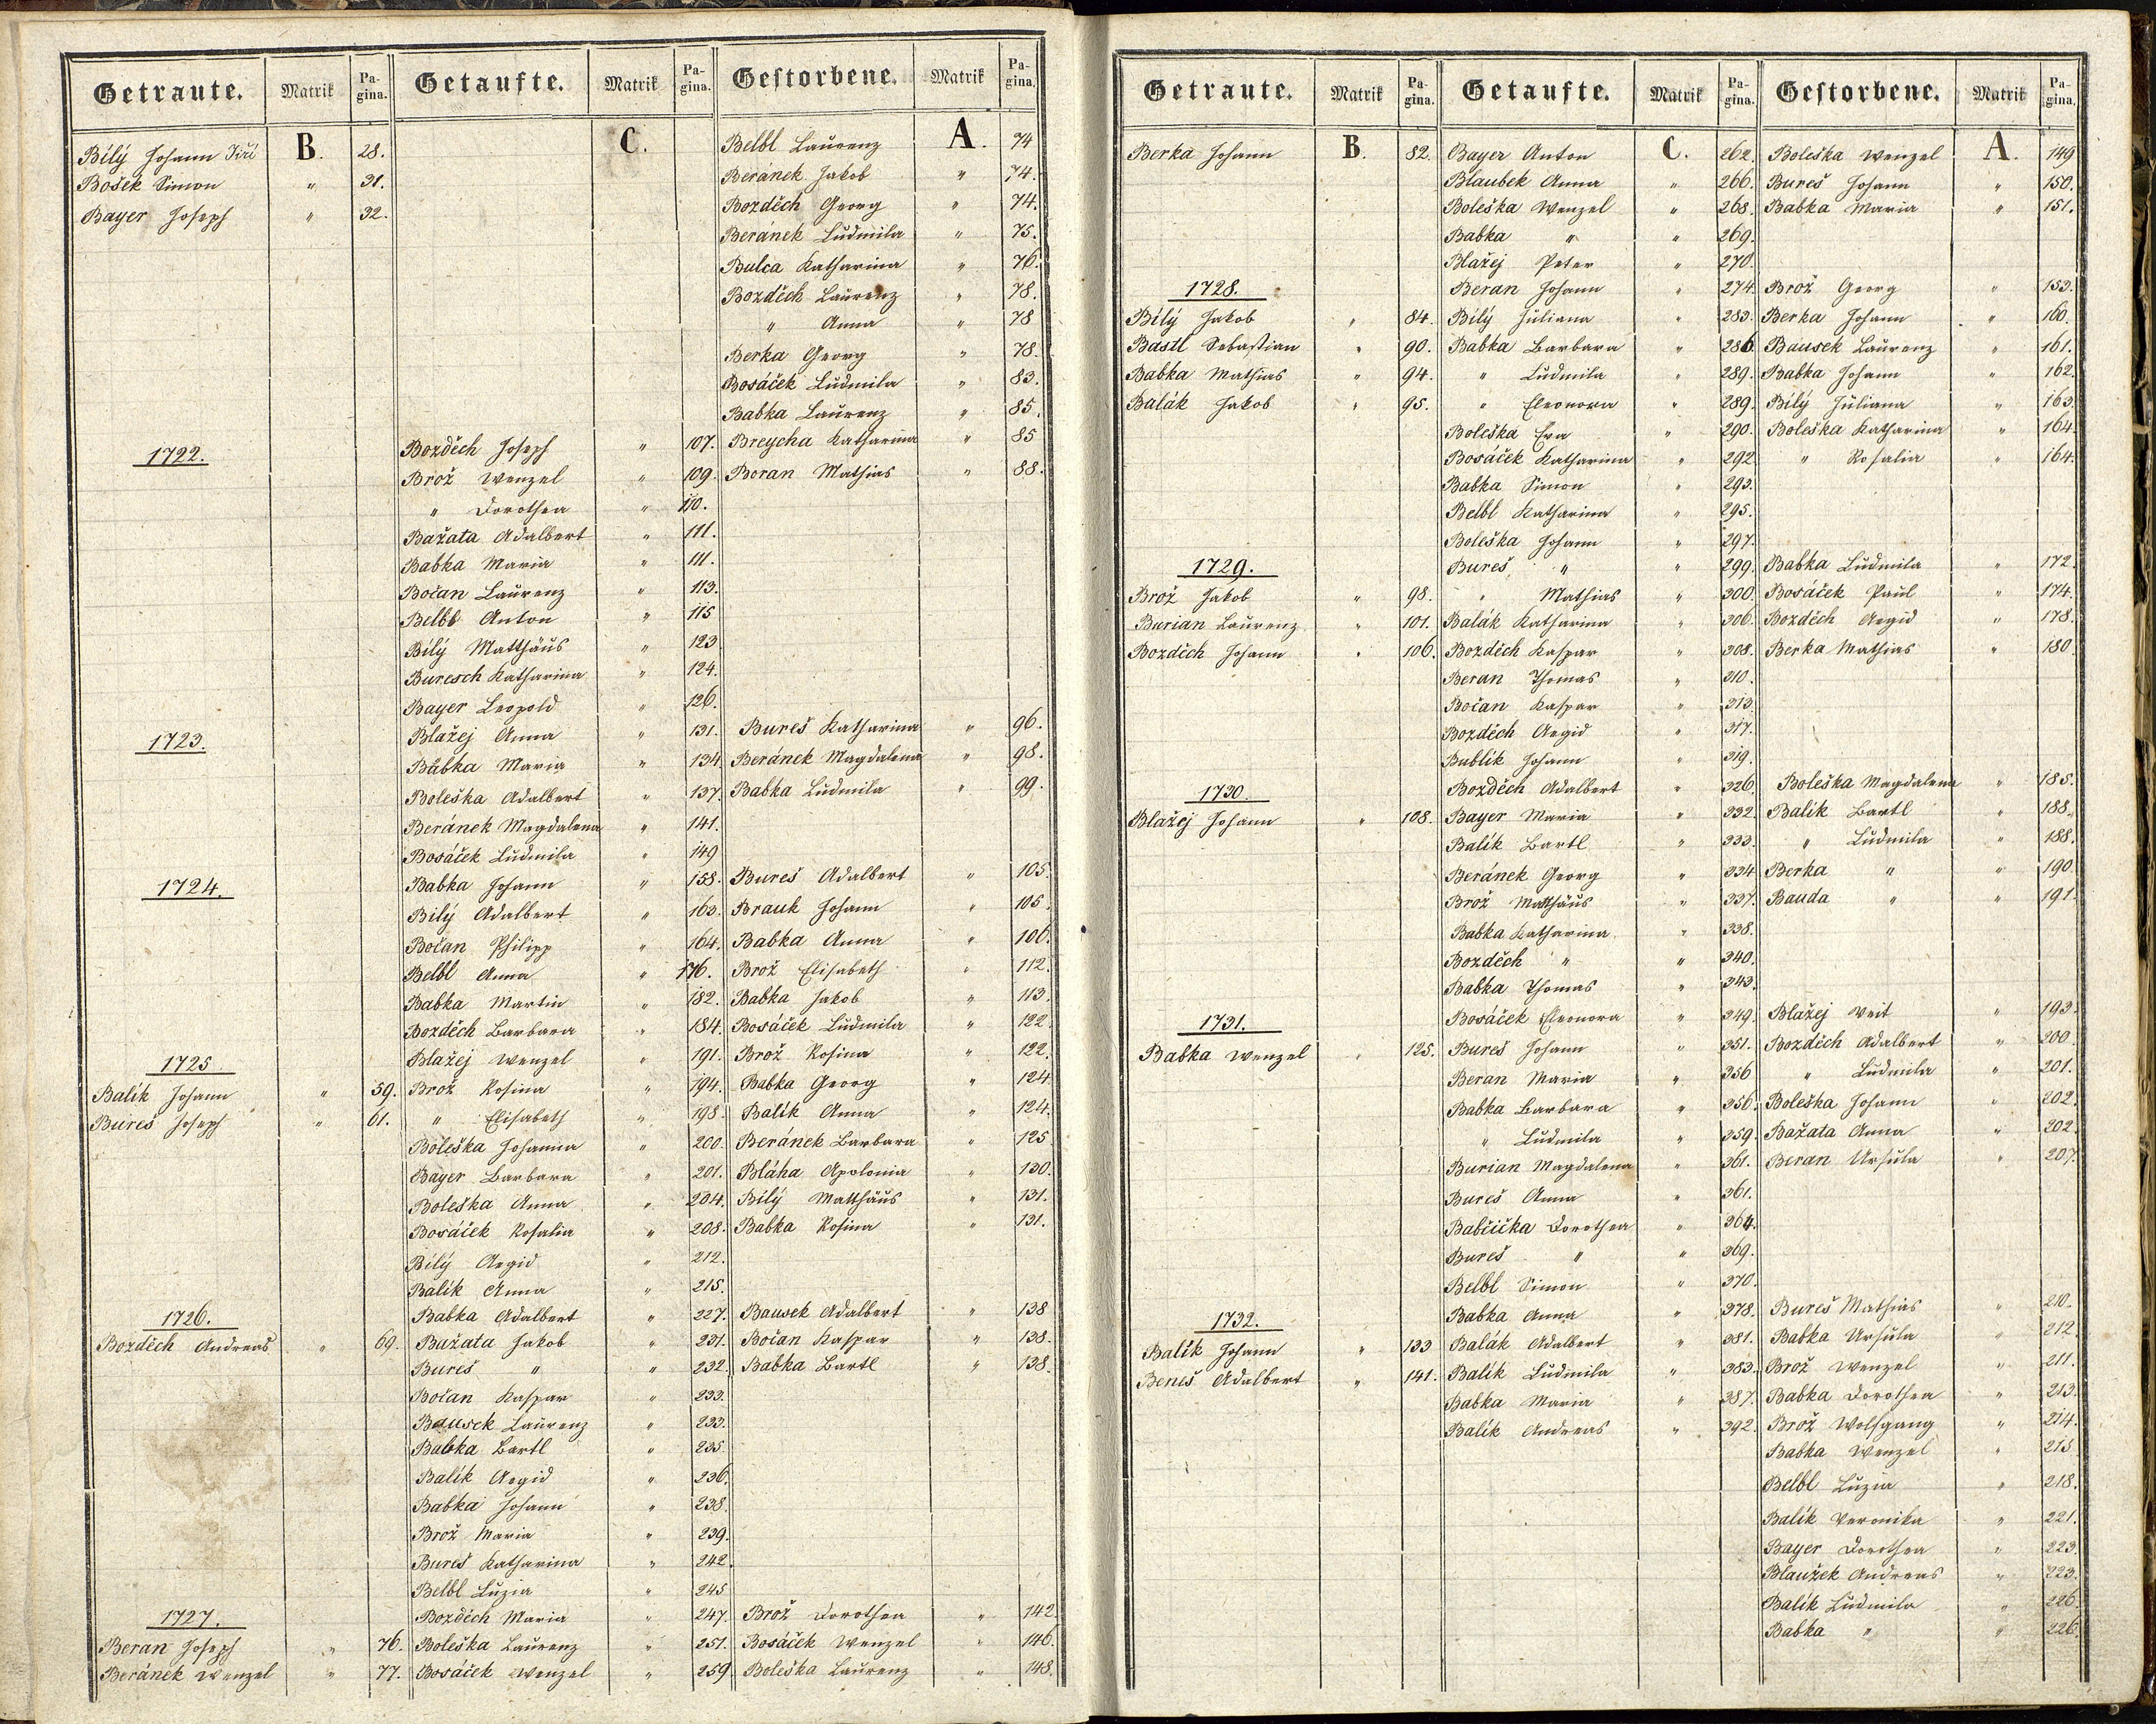 Getraute. Matrik Pagina. Getaufte. Matrik Pagina. Gestorbene. Matrik Pagina.
Bílý Johann Jiří B. 28. C. Belbl Laurenz A. 74
Bošek Simon " 31. Beránek Jakob " 74.
Bayer Joseph " 32. Bozděch Georg " 74.
Beranek Ludmila " 75.
Bulca Katharina " 76.
Bozděch Laurenz " 78.
" Anna " 78
Berka Georg " 78.
Bosáček Ludmila " 83.
Babka Laurenz " 85.
1722. Bozděch Joseph " 107. Breycha Katharina " 85
Brož Wenzel " 109. Beran Mathias " 88.
" Dorothea " 110.
Bažata Adalbert " 111.
Babka Maria " 111.
Bočan Laurenz " 113.
Belbl Anton " 115
Bílý Matthäus " 123
Buresch Katharina " 124.
Bayer Leopold " 126.
1723. Blažej Anna " 131. Bureš Katharina " 96.
Babka Maria " 134. Beránek Magdalena " 98.
Boleška Adalbert " 137. Babka Ludmila " 99.
Beránek Magdalena " 141.
Bosáček Ludmila " 149
1724. Babka Johann " 158. Bureš Adalbert " 105.
Bílý Adalbert " 163. Brauk Johann " 105.
Bočan Philipp " 164. Babka Anna " 106.
Belbl Anna " 176. Brož Elisabeth " 112.
Babka Martin " 182. Babka Jakob " 113.
Bozděch Barbara " 184. Bosáček Ludmila " 122.
1725 Blažej Wenzel " 191. Brož Rosina " 122.
Balík Johann " 59. Brož Rosina " 194. Babka Georg " 124.
Bureš Joseph " 61. " Elisabeth " 198. Balík Anna " 124.
Boleška Johanna " 200. Beránek Barbara " 125
Bayer Barbara " 201. Bláha Apolonia " 130.
Boleška Anna " 204. Bílý Matthäus " 131.
Bosáček Rosalia " 208. Babka Rosina " 131.
Bílý Aegid " 212.
Balík Anna " 215.
1726. Babka Adalbert " 227. Bausek Adalbert " 138
Bozděch Andreas " 69. Bažata Jakob " 231. Bočan Kaspar " 138.
Bureš " " 232. Babka Bartl " 138.
Bočan Kaspar " 233.
Bausek Laurenz " 233.
Babka Bartl " 235.
Balík Aegid " 236.
Babka Johann " 238.
Brož Maria " 239.
Bureš Katharina " 242.
Belbl Luzia " 245
1727. Bozděch Maria " 247. Brož Dorothea " 142.
Beran Joseph " 76. Boleška Laurenz " 251. Bosáček Wenzel " 146.
Beránek Wenzel " 77. Bosáček Wenzel " 259. Boleška Laurenz " 148.
Getraute. Matrik Pagina. Getaufte. Matrik Pagina. Gestorbene. Matrik Pagina.
Berka Johann B. 82. Bayer Anton C. 262. Boleška Wenzel A. 149
Blaubek Anna " 266. Bureš Johann " 150.
Boleška Wenzel " 268. Babka Maria " 151.
Babka " " 269.
Blažej Peter " 270.
1728. Beran Johann " 274. Brož Georg " 153.
Bílý Jakob " 84. Bílý Juliana " 283. Berka Johann " 160.
Bastl Sebastian " 90. Babka Barbara " 286. Bausek Laurenz " 161.
Babka Mathias " 94. " Ludmila " 289. Babka Johann " 162.
Balák Jakob " 95. " Eleonora " 289. Bílý Juliana " 163.
Boleška Eva " 290. Boleška Katharina " 164.
Bosáček Katharina " 292. " Rosalia " 164.
Babka Simon " 293.
Belbl Katharina " 295.
Boleška Johann " 297.
1729. Bureš " " 299. Babka Ludmila " 172.
Brož Jakob " 98. " Mathias " 300. Bosáček Paul " 174.
Burian Laurenz " 101. Balák Katharina " 306. Bozděch Aegid " 178.
Bozděch Johann " 106. Bozděch Kaspar " 308. Berka Mathias " 180.
Beran Thomas " 310.
Bočan Kaspar " 313.
Bozděch Aegid " 317.
Bublík Johann " 319.
1730. Bozděch Adalbert " 326. Boleška Magdalena " 185.
Blažej Johann " 108. Bayer Maria " 332. Balík Bartl " 188.
Balík Bartl " 333. " Ludmila " 188.
Beránek Georg " 334. Berka " " 190.
Brož Matthäus " 337. Bauda " " 191.
Babka Katharina " 338.
Bozděch " " 340.
Babka Thomas " 343.
1731. Bosáček Eleonora " 349. Blažej Veit " 193.
Babka Wenzel " 125. Bureš Johann " 351. Bozděch Adalbert " 200.
Beran Maria " 356 " Ludmila " 201.
Babka Barbara " 356. Boleška Johann " 202.
" Ludmila " 359. Bažata Anna " 202.
Burian Magdalena " 361. Beran Ursula " 207.
Bureš Anna " 361.
Babčička Dorothea " 364.
Bureš " " 369.
Belbl Simon " 370.
1732. Babka Anna " 378. Bureš Mathias " 210.
Balík Johann " 133 Balák Adalbert " 381. Babka Ursula " 212.
Beneš Adalbert " 141. Balík Ludmila " 383. Brož Wenzel " 211.
Babka Maria " 387. Babka Dorothea " 213.
Balík Andreas " 392. Brož Wolfgang " 214.
Babka Wenzel " 215
Belbl Luzia " 218.
Balík Veronika " 221.
Bayer Dorothea " 223.
Blaužek Andreas " 223.
Balík Ludmila " 226.
Babka " " 226.